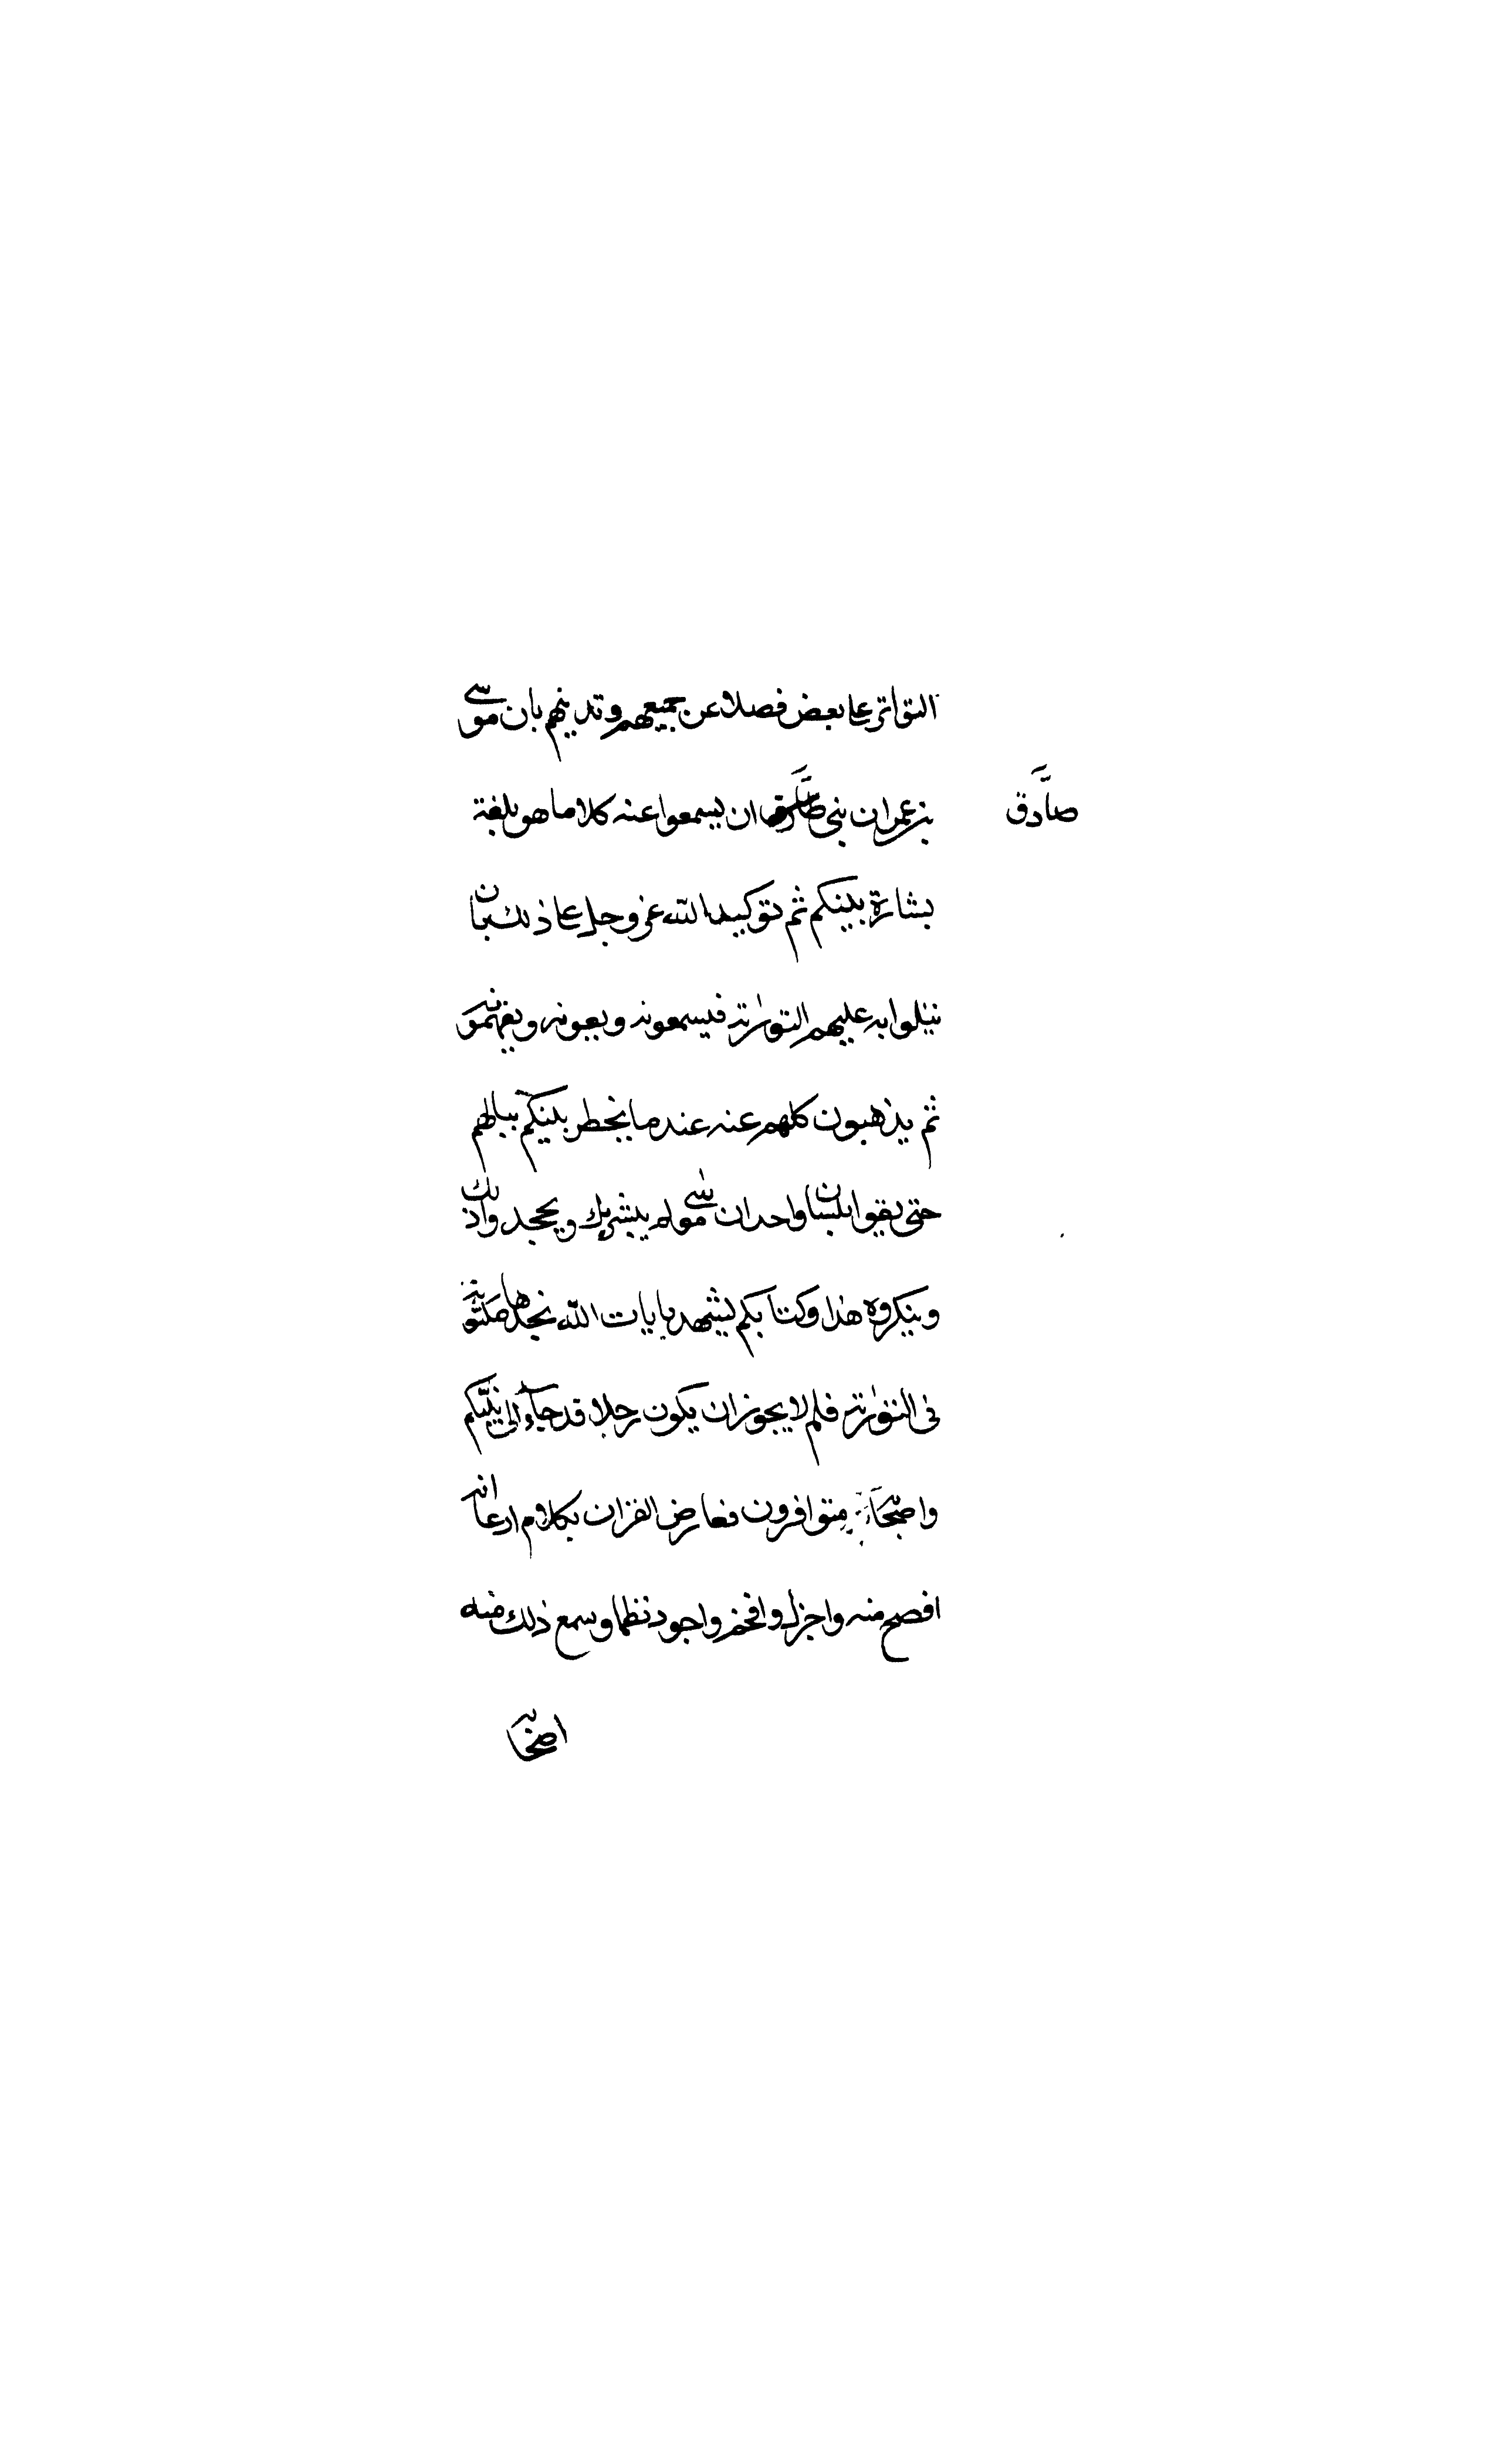 التواتر على بعض فصلا عن جميعهم وتدينهم بان موسى
بن عمران نبى صادق ان يسمعوا عنه كلاما هو بلغة
صادق
بشارة بنبيكم ثم توكيد الله عز وجل على ذلك بان
يتلوا به عليهم التورٰته فيسمعونه ويعونه ويفهمونه
ثم يذهبون كلهم عنه عند ما يخطر بنبيكم ببالهم
حتى بلسان واحد ان موسى لم يبشر بك ويجحدوا ذلك
وينكروه هذا وكتابكم يشهد بايات الله نجدها مكتوبة
فى التورٰته فلم لا يجوز ان يكون رجلا قد جآء الى نبيّكم
واصحابه متوافرون فعارض القران بكلام ادعا انه
افصح منه واجزل وافخم واجود نظما وسمع ذلك منه
اصحا